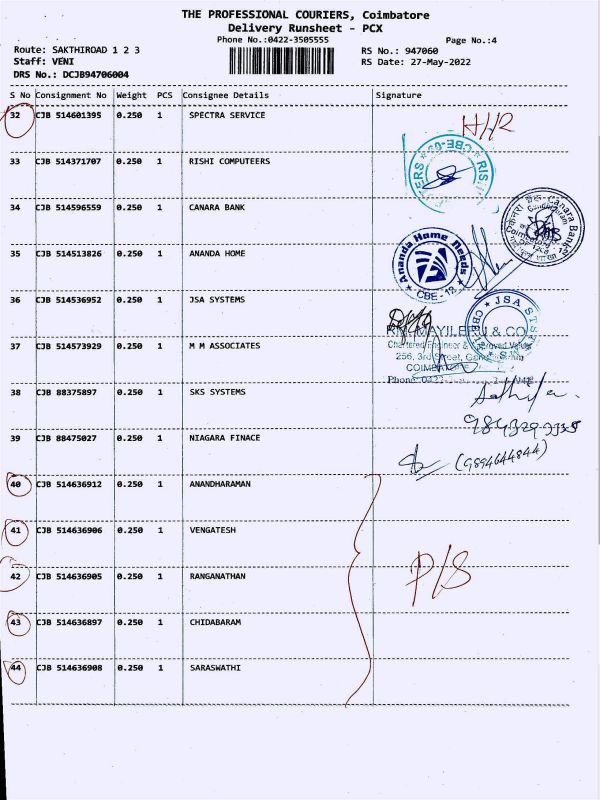 THE PROFESSIONAL COURIERS, Coimbatore
Delivery Runsheet - PCX
Phone No.:0422-3505555
Page No.:4
Route: SAKTHIROAD 1 2 3
RS No.: 947060
Staff: VENI
RS Date: 27-May-2022
DRS No.: DCJB94706004
S No Consignment No Weight PCS Consignee Details Signature
32 CJB 514601395 0.250 1 SPECTRA SERVICE
33 CJB 514371707 0.250 1 RISHI COMPUTEERS
34 CJB 514596559 0.250 1 CANARA BANK
Canara Bank
35 CJB 514513826 0.250 1 ANANDA HOME
Ananda Home Needs
CBE - 12
36 CJB 514536952 0.250 1 JSA SYSTEMS
JSA
37 CJB 514573929 0.250 1 M M ASSOCIATES
& CO
Chartered Engineer &
256, 3rd Street,
38 CJB 88375897 0.250 1 SKS SYSTEMS
39 CJB 88475027 0.250 1 NIAGARA FINACE
(9894644844)
40 CJB 514636912 0.250 1 ANANDHARAMAN
41 CJB 514636906 0.250 1 VENGATESH
42 CJB 514636905 0.250 1 RANGANATHAN
P/S
43 CJB 514636897 0.250 1 CHIDABARAM
44 CJB 514636908 0.250 1 SARASWATHI